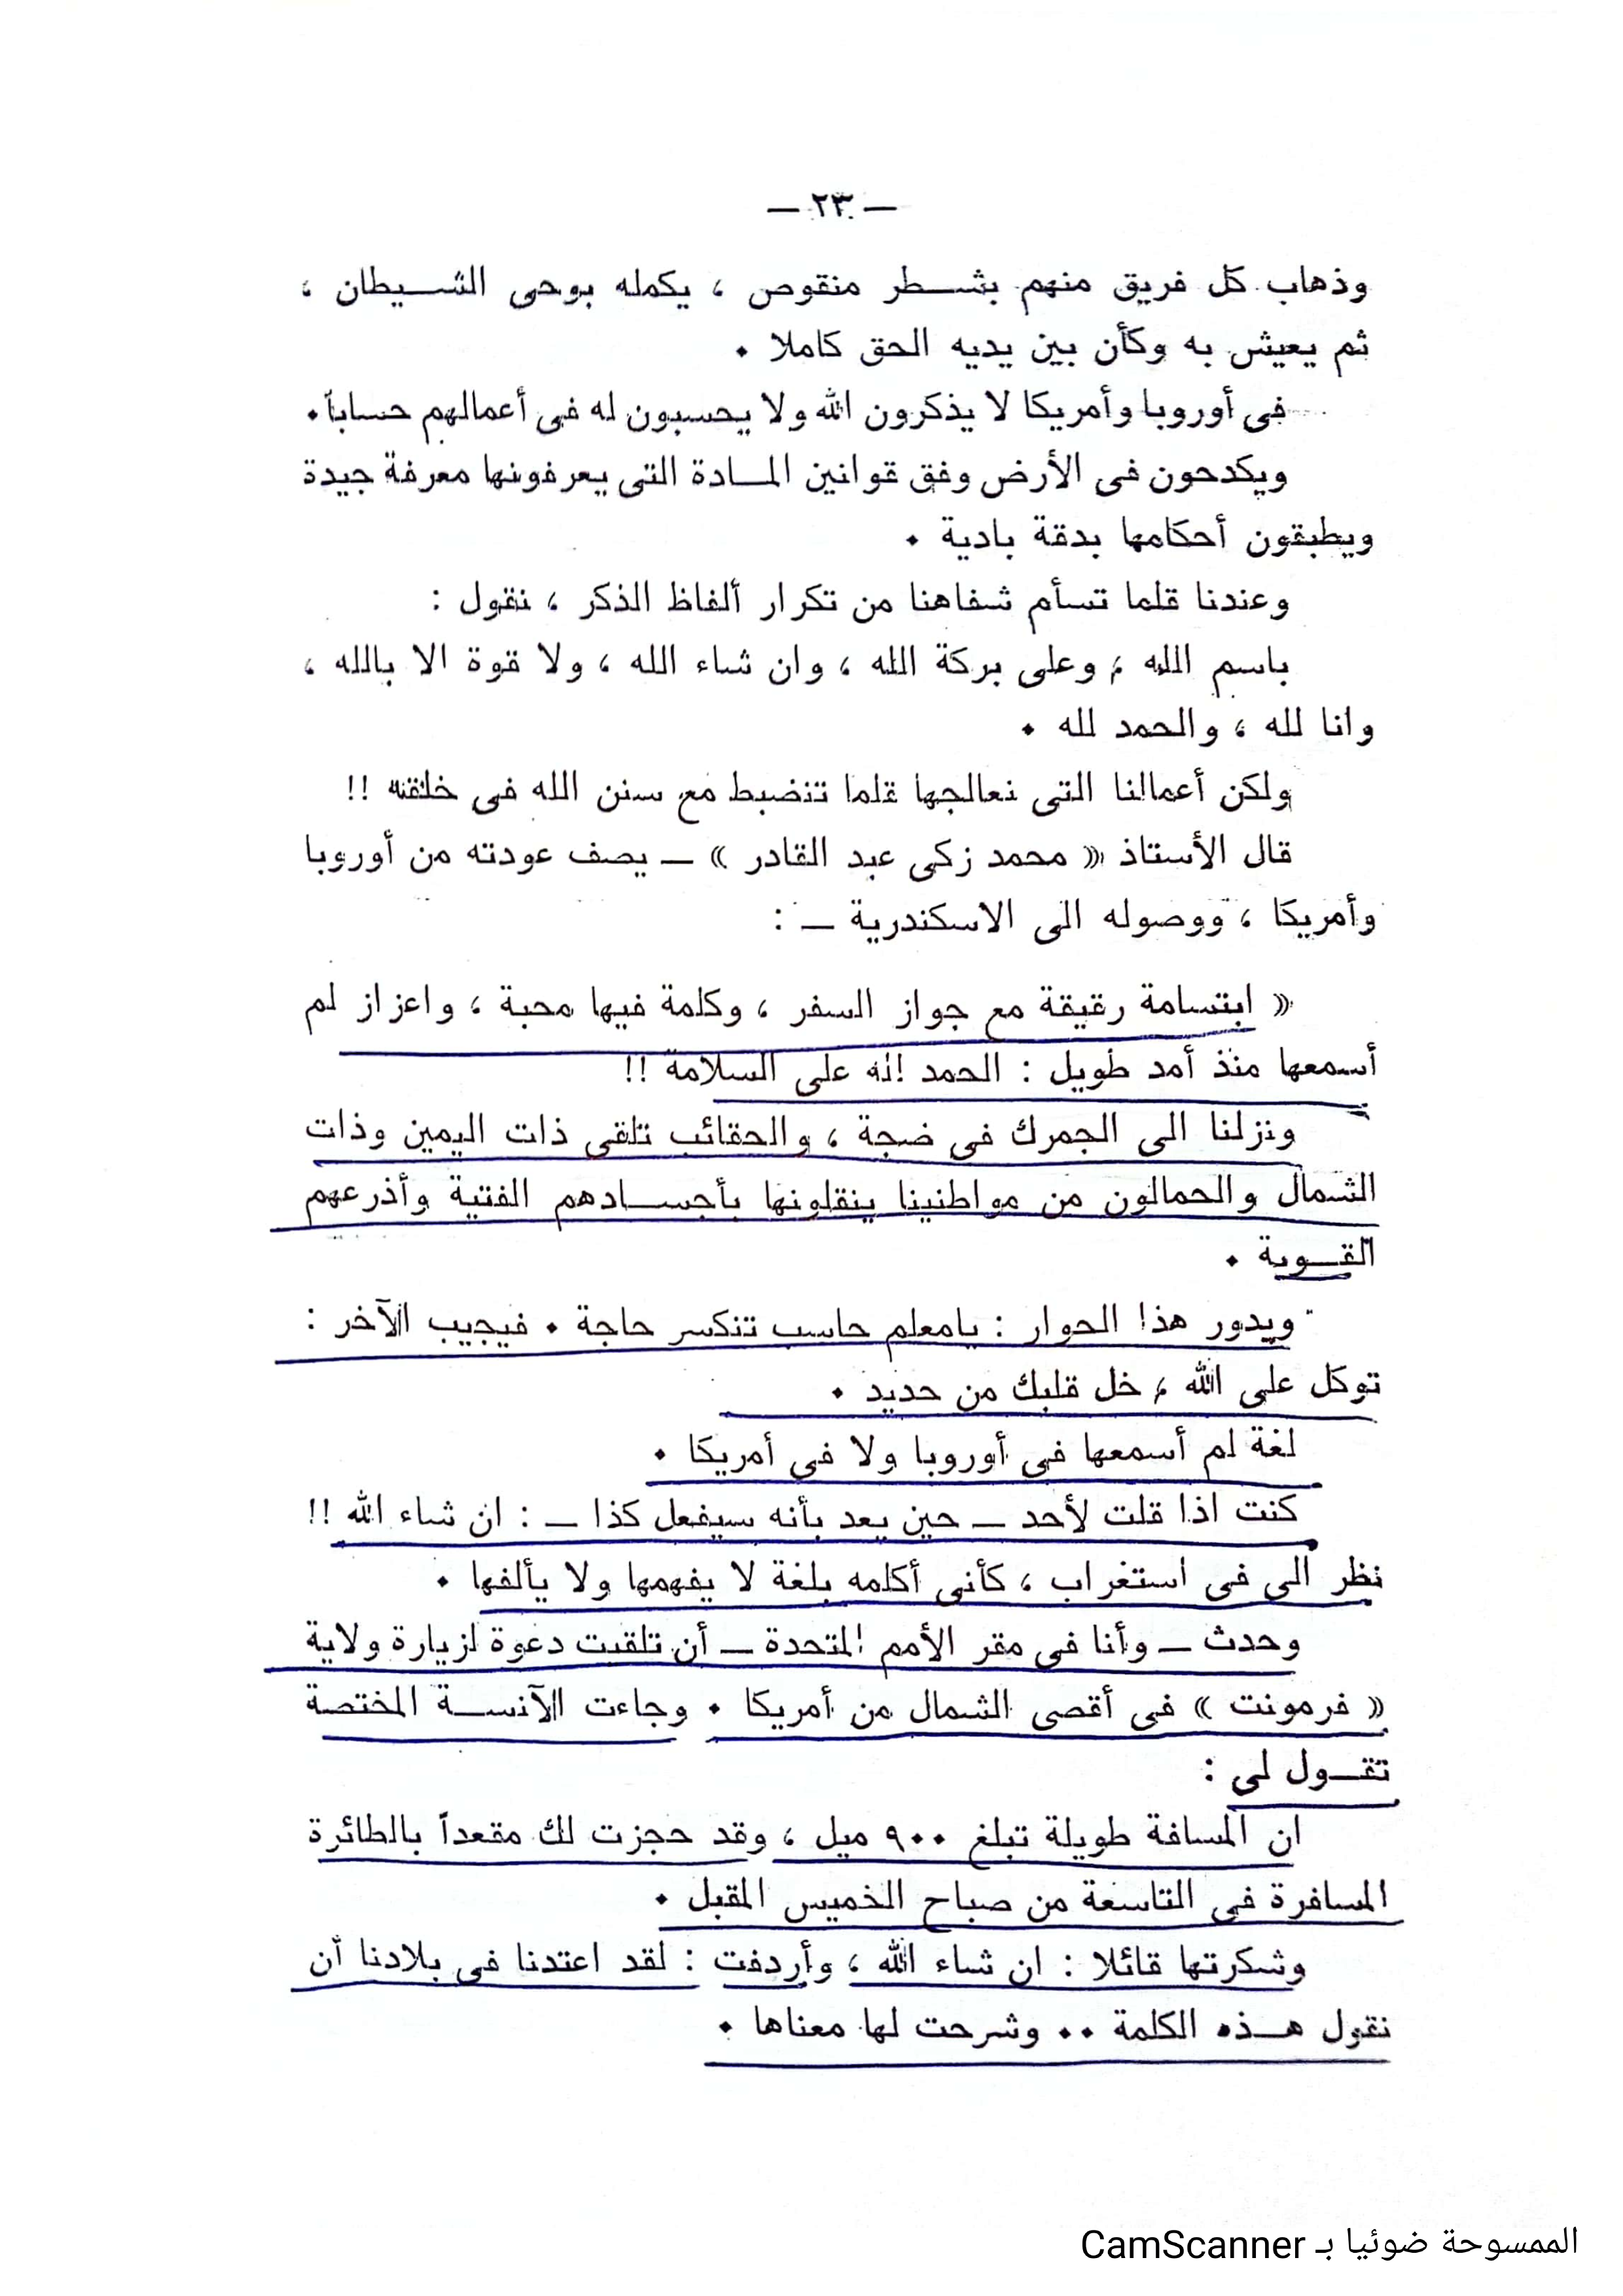 — ٢٣ —
وذهاب كل فريق منهم بشـــطر منقوص ، يكمله بوحى الشـــيطان ،
ثم يعيش به وكأن بين يديه الحق كاملا ٠
فى أوروبا وأمريكا لا يذكرون الله ولا يحسبون له فى أعمالهم حساباً ٠
ويكدحون فى الأرض وفق قوانين المـــادة التى يعرفونها معرفة جيدة
ويطبقون أحكامها بدقة بادية ٠
وعندنا قلما تسأم شفاهنا من تكرار ألفاظ الذكر ، نقول :
باسم الله ، وعلى بركة الله ، وان شاء الله ، ولا قوة الا بالله ،
وانا لله ، والحمد لله ٠
ولكن أعمالنا التى نعالجها قلما تنضبط مع سنن الله فى خلقه !!
قال الأستاذ « محمد زكى عبد القادر » — يصف عودته من أوروبا
وأمريكا ، ووصوله الى الاسكندرية — :
« ابتسامة رقيقة مع جواز السفر ، وكلمة فيها محبة ، واعزاز لم
أسمعها منذ أمد طويل : الحمد لله على السلامة !!
ونزلنا الى الجمرك فى ضجة ، والحقائب تلقى ذات اليمين وذات
الشمال والحمالون من مواطنينا ينقلونها بأجســـادهم الفتية وأذرعهم
القـــوية ٠
ويدور هذا الحوار : يامعلم حاسب تنكسر حاجة ٠ فيجيب الآخر :
توكل على الله ، خل قلبك من حديد ٠
لغة لم أسمعها فى أوروبا ولا فى أمريكا ٠
كنت اذا قلت لأحد — حين يعد بأنه سيفعل كذا — : ان شاء الله !!
نظر الى فى استغراب ، كأنى أكلمه بلغة لا يفهمها ولا يألفها ٠
وحدث — وأنا فى مقر الأمم المتحدة — أن تلقيت دعوة لزيارة ولاية
« فرمونت » فى أقصى الشمال من أمريكا ٠ وجاءت الآنســـة المختصة
تقـــول لى :
ان المسافة طويلة تبلغ ٩٠٠ ميل ، وقد حجزت لك مقعداً بالطائرة
المسافرة فى التاسعة من صباح الخميس المقبل ٠
وشكرتها قائلا : ان شاء الله ، وأردفت : لقد اعتدنا فى بلادنا أن
نقول هـــذه الكلمة ٠٠ وشرحت لها معناها ٠
الممسوحة ضوئيا بـ CamScanner